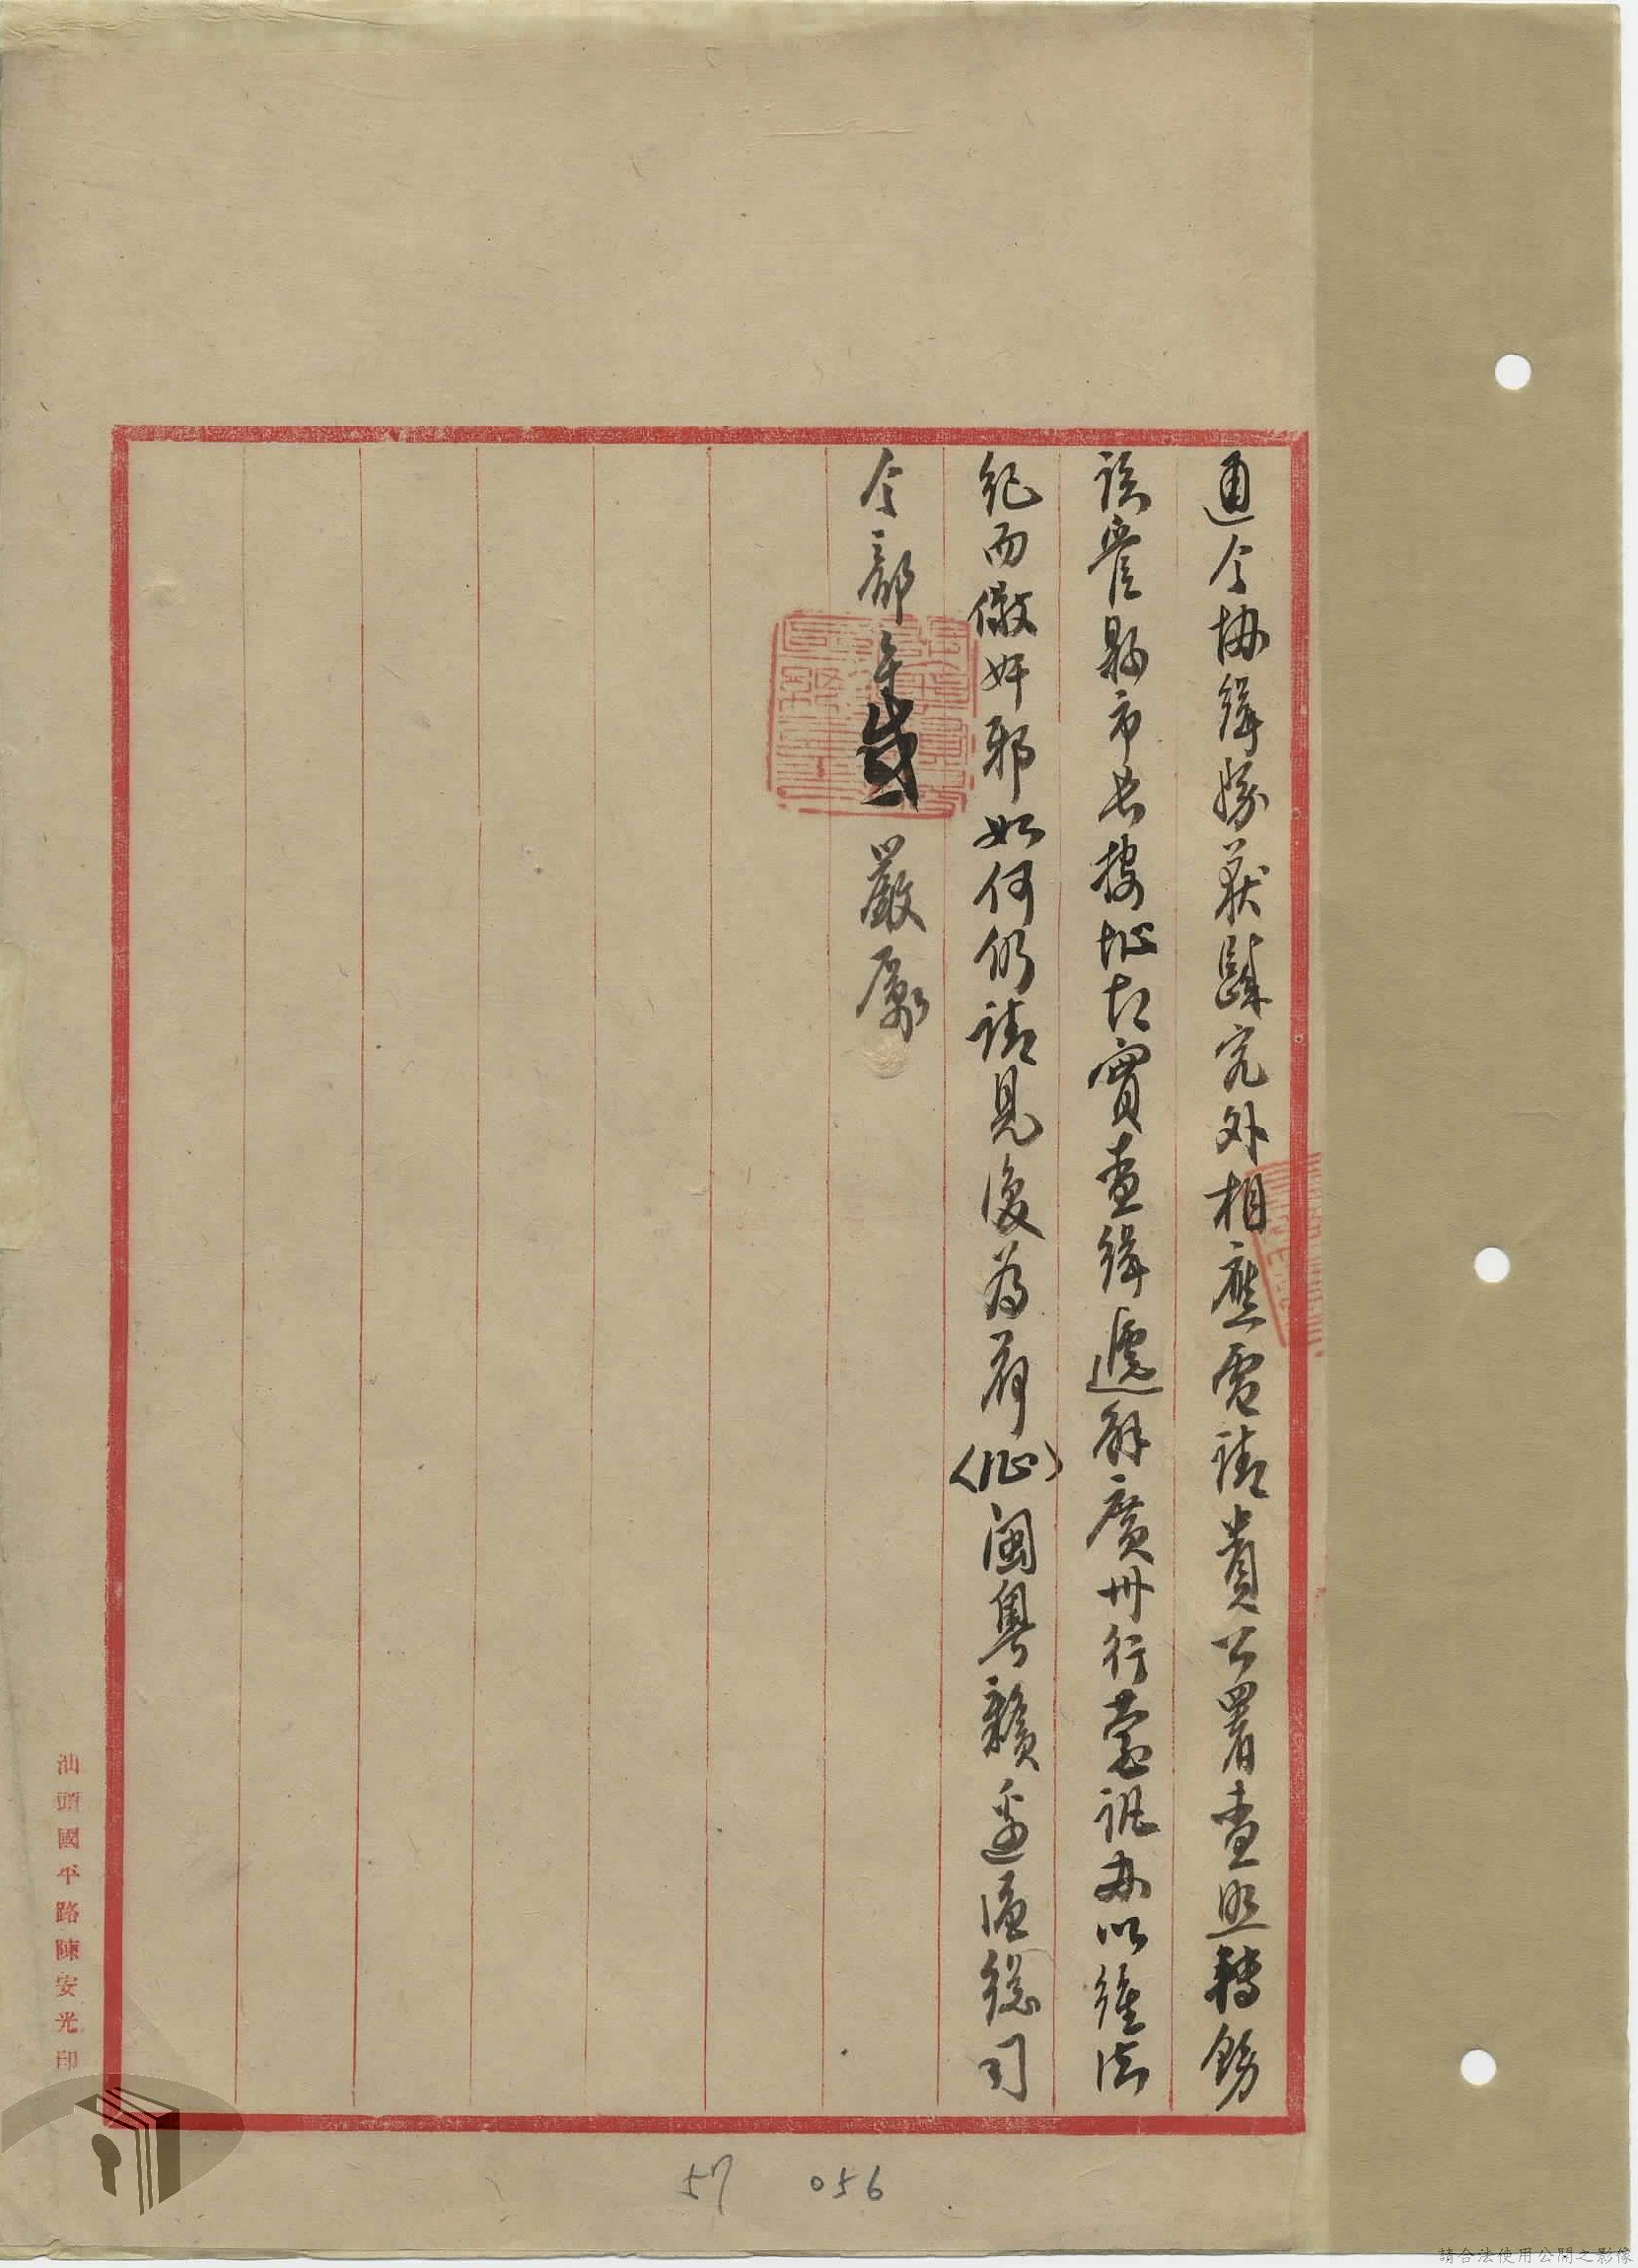 通令協緝務獲歸究外相應電請貴公署查照轉飭
該管縣市長按址切實查緝遞解廣州行營訊办以維法
紀而儆奸邪如何仍請見復為荷（1心）閩粵贛邊區總司
令部 嚴原
汕頭國平路陳安光印
57 056
請合法使用公開之影像